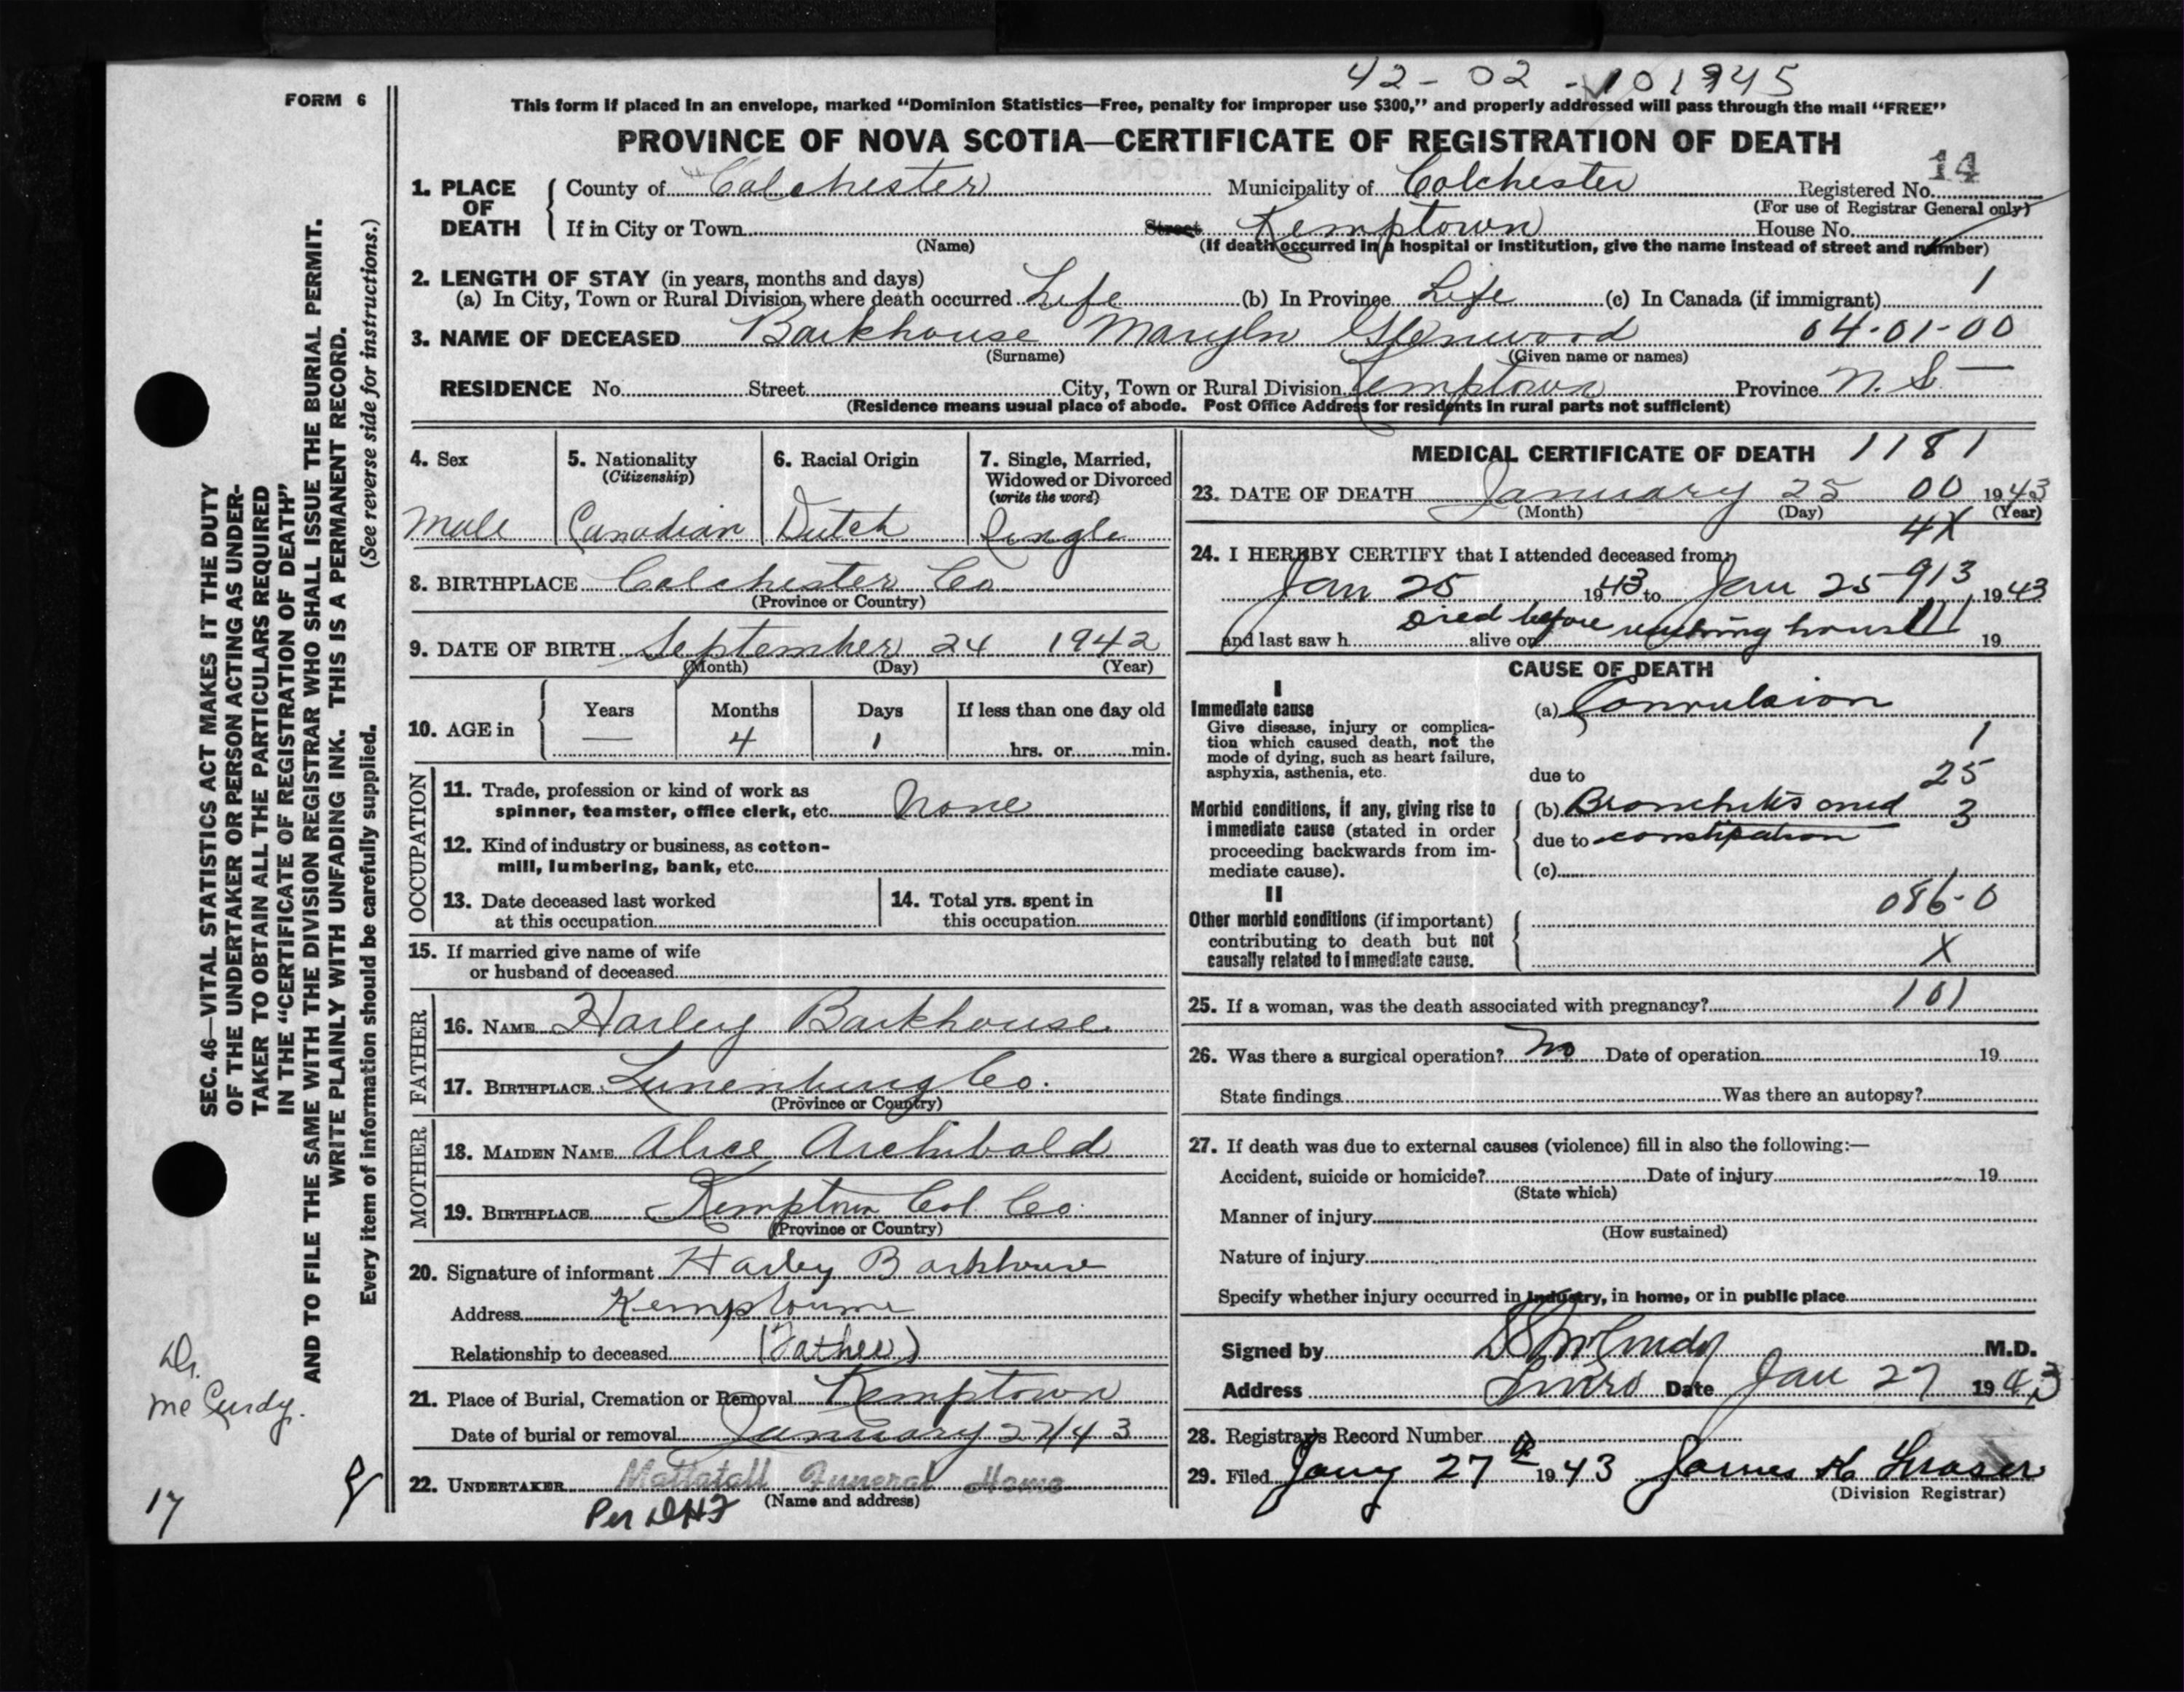 42-02-101945
FORM 6
This form if placed in an envelope, marked "Dominion Statistics—Free, penalty for improper use $300," and properly addressed will pass through the mail "FREE"
PROVINCE OF NOVA SCOTIA—CERTIFICATE OF REGISTRATION OF DEATH
14
1. PLACE OF DEATH
County of Colchester Municipality of Colchester Registered No.
(For use of Registrar General only)
If in City or Town Street Kemptown House No.
(Name) (If death occurred in a hospital or institution, give the name instead of street and number)
2. LENGTH OF STAY (in years, months and days)
(a) In City, Town or Rural Division where death occurred Life (b) In Province Life (c) In Canada (if immigrant) 1
3. NAME OF DECEASED Barkhouse Maryln Glenwood 04-01-00
(Surname) (Given name or names)
RESIDENCE No. Street City, Town or Rural Division Kemptown Province N. S. —
(Residence means usual place of abode. Post Office Address for residents in rural parts not sufficient)
4. Sex
Male
5. Nationality
(Citizenship)
Canadian
6. Racial Origin
Dutch
7. Single, Married,
Widowed or Divorced
(write the word)
Single
8. BIRTHPLACE Colchester Co
(Province or Country)
9. DATE OF BIRTH September 24 1942
(Month) (Day) (Year)
10. AGE in
Years Months Days If less than one day old
— 4 1 hrs. or min.
OCCUPATION
11. Trade, profession or kind of work as
spinner, teamster, office clerk, etc. None
12. Kind of industry or business, as cotton-
mill, lumbering, bank, etc.
13. Date deceased last worked
at this occupation
14. Total yrs. spent in
this occupation
15. If married give name of wife
or husband of deceased
FATHER
16. NAME Harley Barkhouse
17. BIRTHPLACE Lunenburg Co.
(Province or Country)
MOTHER
18. MAIDEN NAME Alice Archibald
19. BIRTHPLACE Kemptown Col. Co.
(Province or Country)
20. Signature of informant Harley Barkhouse
Address Kemptown
Relationship to deceased (Father)
21. Place of Burial, Cremation or Removal Kemptown
Date of burial or removal January 27/43
22. UNDERTAKER Mattatall Funeral Home
(Name and address)
Per
MEDICAL CERTIFICATE OF DEATH 1181
23. DATE OF DEATH January 25 00 1943
(Month) (Day) (Year)
4X
24. I HEREBY CERTIFY that I attended deceased from:
Jan 25 1943 to Jan 25 913, 1943
Died before reaching house 111
and last saw h alive on 19
CAUSE OF DEATH
I
Immediate cause
Give disease, injury or complica-
tion which caused death, not the
mode of dying, such as heart failure,
asphyxia, asthenia, etc.
(a) Convulsion
1
due to 25
Morbid conditions, if any, giving rise to
immediate cause (stated in order
proceeding backwards from im-
mediate cause).
(b) Bronchitis and 3
due to constipation
(c)
II
086-0
Other morbid conditions (if important)
contributing to death but not
causally related to immediate cause.
X
25. If a woman, was the death associated with pregnancy? 101
26. Was there a surgical operation? No Date of operation 19
State findings Was there an autopsy?
27. If death was due to external causes (violence) fill in also the following:—
Accident, suicide or homicide? Date of injury 19
(State which)
Manner of injury
(How sustained)
Nature of injury
Specify whether injury occurred in industry, in home, or in public place
Signed by M.D.
Address Truro Date Jan 27 1943
28. Registrar's Record Number
29. Filed Jany 27th 1943 James K Fraser
(Division Registrar)
SEC. 46—VITAL STATISTICS ACT MAKES IT THE DUTY
OF THE UNDERTAKER OR PERSON ACTING AS UNDER-
TAKER TO OBTAIN ALL THE PARTICULARS REQUIRED
IN THE "CERTIFICATE OF REGISTRATION OF DEATH"
AND TO FILE THE SAME WITH THE DIVISION REGISTRAR WHO SHALL ISSUE THE BURIAL PERMIT.
WRITE PLAINLY WITH UNFADING INK. THIS IS A PERMANENT RECORD.
Every item of information should be carefully supplied. (See reverse side for instructions.)
Dr.
McCurdy.
17